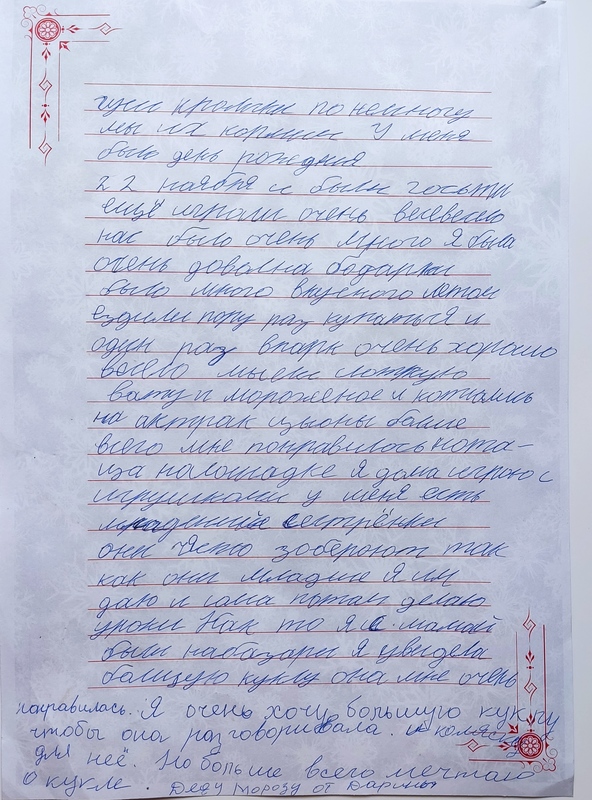 гуси кролики понемногу
мы их кормим У меня
было день рождния
22 ноября и были госьти
ещё играли очень весевело
нас было очень много Я была
очень доволна бодарки
было много вкусного летом
ездили пору раз купаться и
один раз впарк очень хорошо
всего мыели
вату и мороженое и котались
на актрак цыоны болше
всего мне понравилось ката-
ца налошадке я дома играю с
игрушками у меня есть
сестрёнки
они часто зобероют так
как они младше Я им
даю и сама потом делаю
уроки Как то я с мамай
были набазари я увидела
болшую куклу она мне очень
панравилась. Я очень хочу большую куклу
чтобы она разговоривала. и коляску
для неё. Но больше всего мечтаю
о кукле. Деду Морозу от Дарины